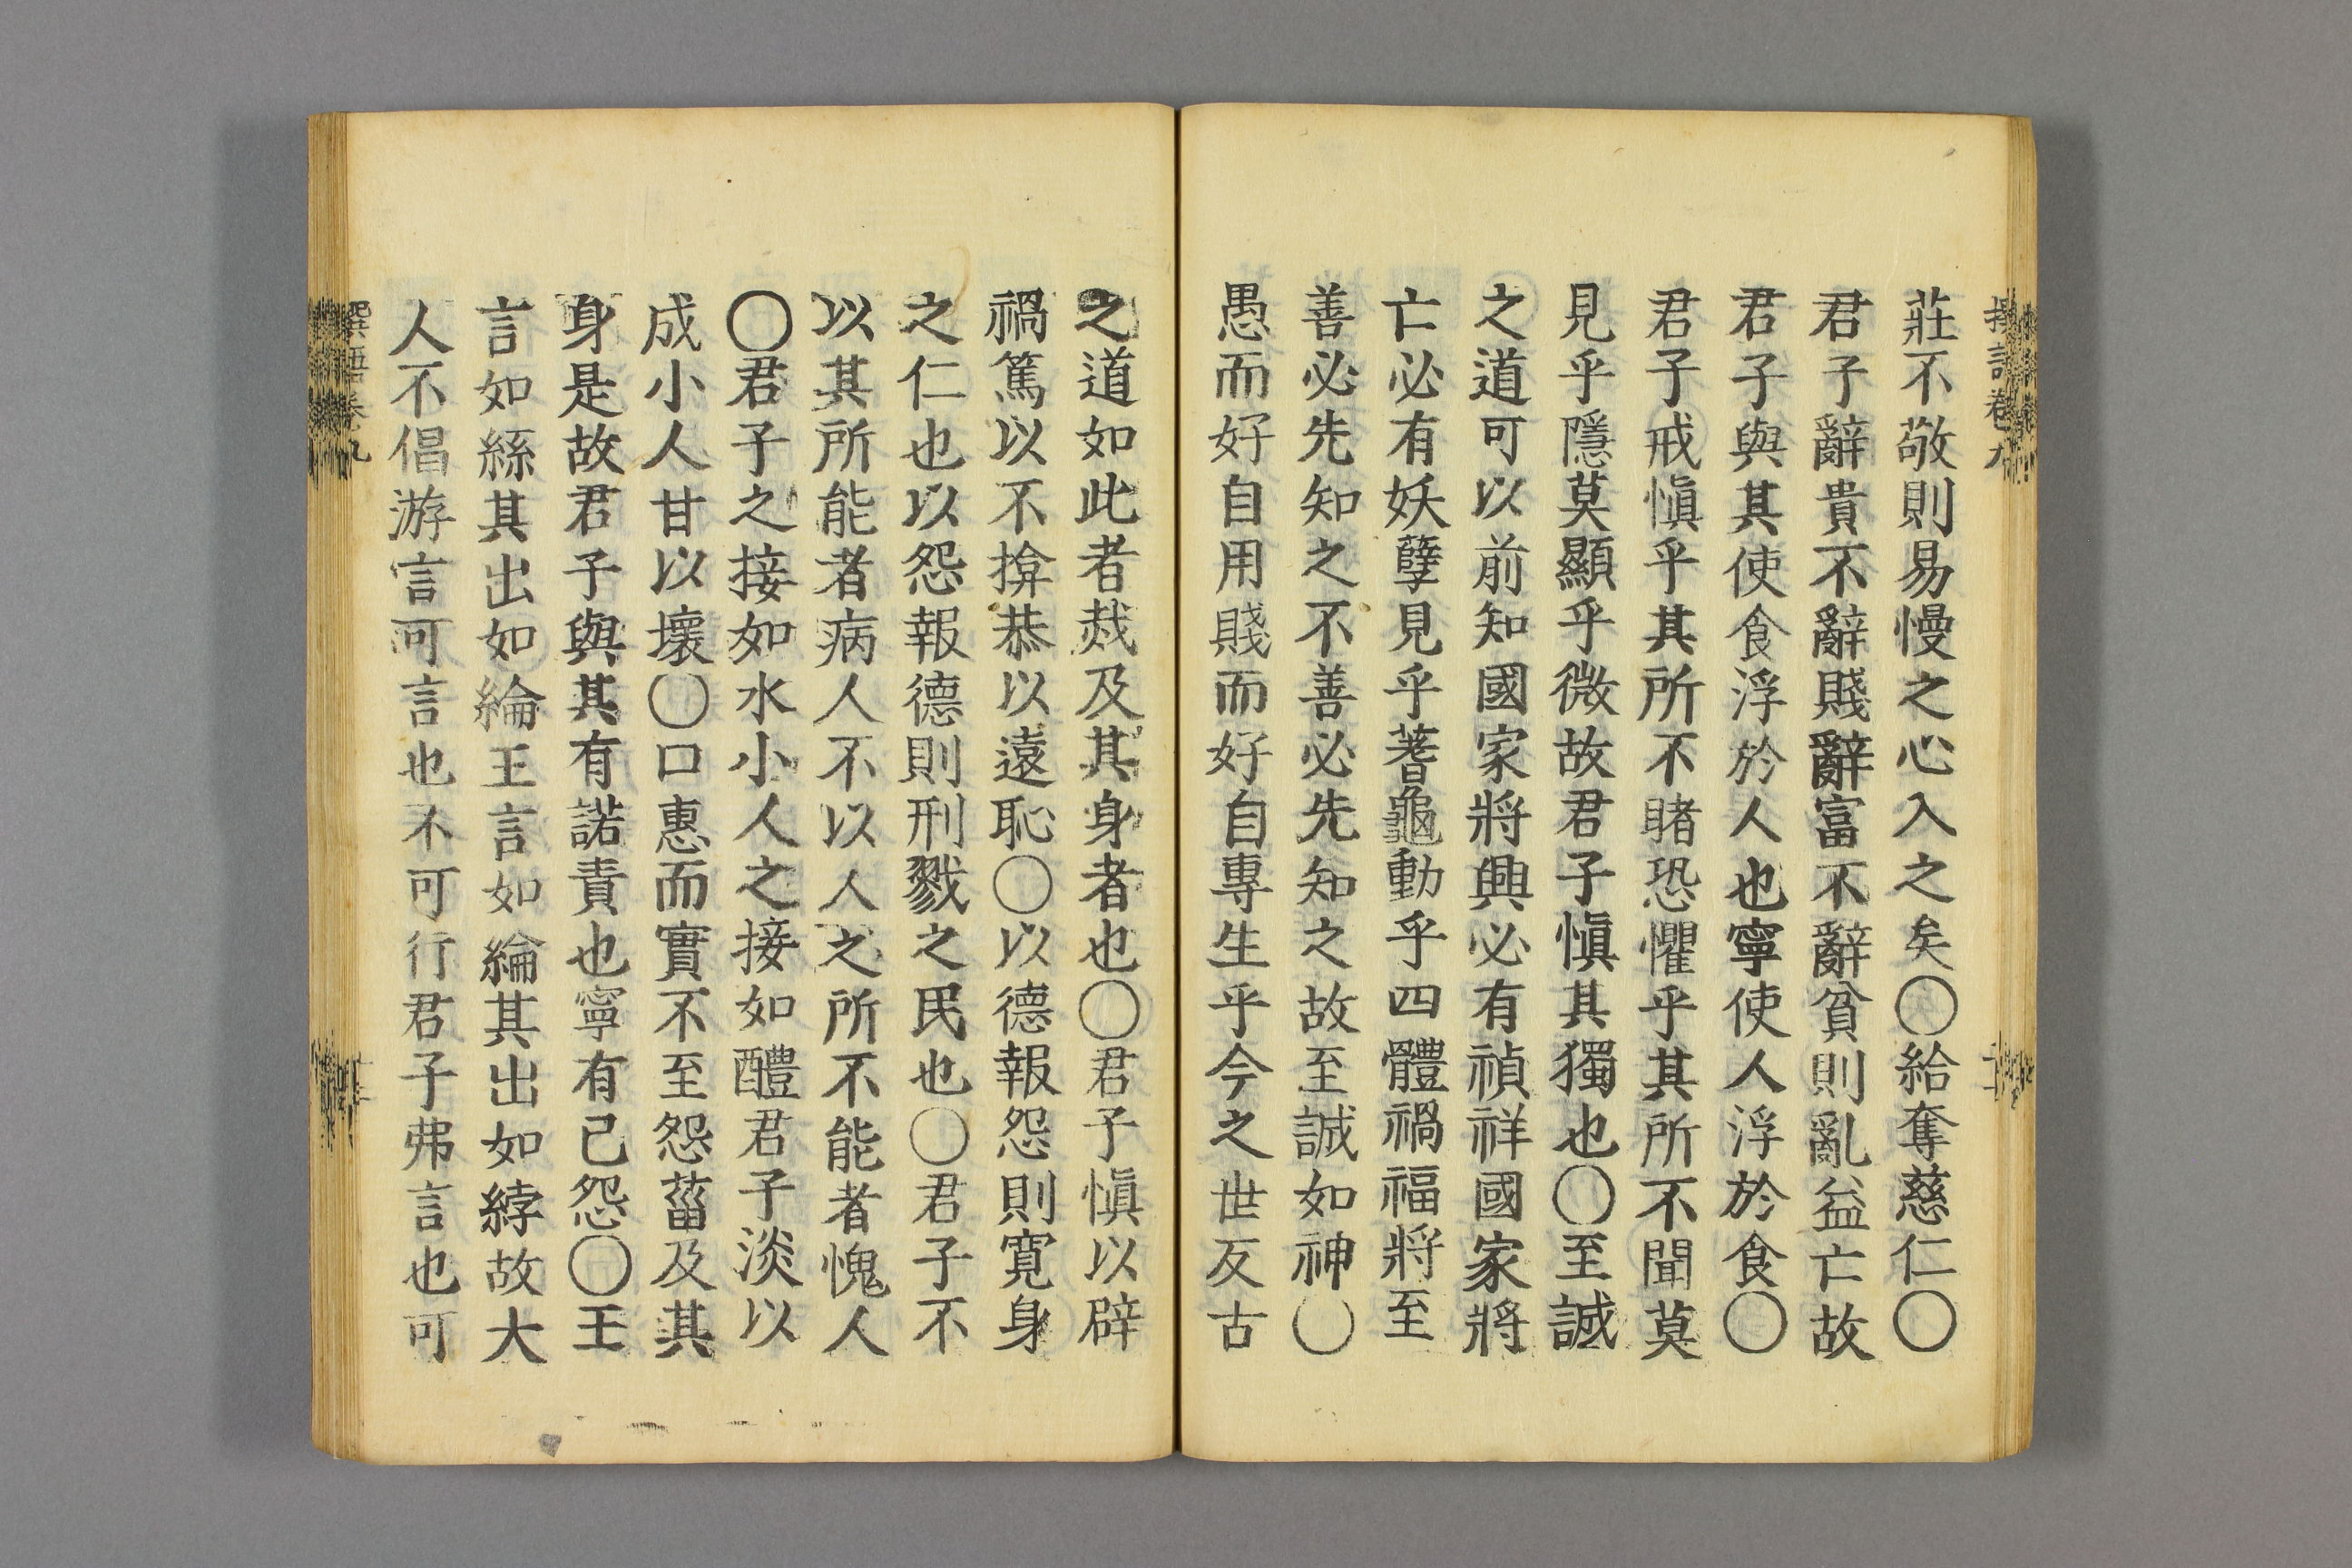 莊不敬則易慢之心入之矣〇給奪慈仁〇
君子辭貴不辭賤辭富不辭貧則亂益亡故
君子與其使食浮於人也寧使人浮於食〇
君子戒愼乎其所不睹恐懼乎其所不聞莫
見乎隱莫顯乎微故君子愼其獨也〇至誠
之道可以前知國家將興必有禎祥國家將
亡必有妖孽見乎蓍龜動乎四體禍福將至
善必先知之不善必先知之故至誠如神〇
愚而好自用賤而好自專生乎今之世反古
之道如此者烖及其身者也〇君子愼以辟
禍篤以不揜恭以遠恥〇以德報怨則寬身
之仁也以怨報德則刑戮之民也〇君子不
以其所能者病人不以人之所不能者愧人
〇君子之接如水小人之接如醴君子淡以
成小人甘以壞〇口惠而實不至怨菑及其
身是故君子與其有諾責也寧有已怨〇王
言如絲其出如綸王言如綸其出如綍故大
人不倡游言可言也不可行君子弗言也可
撰語卷九